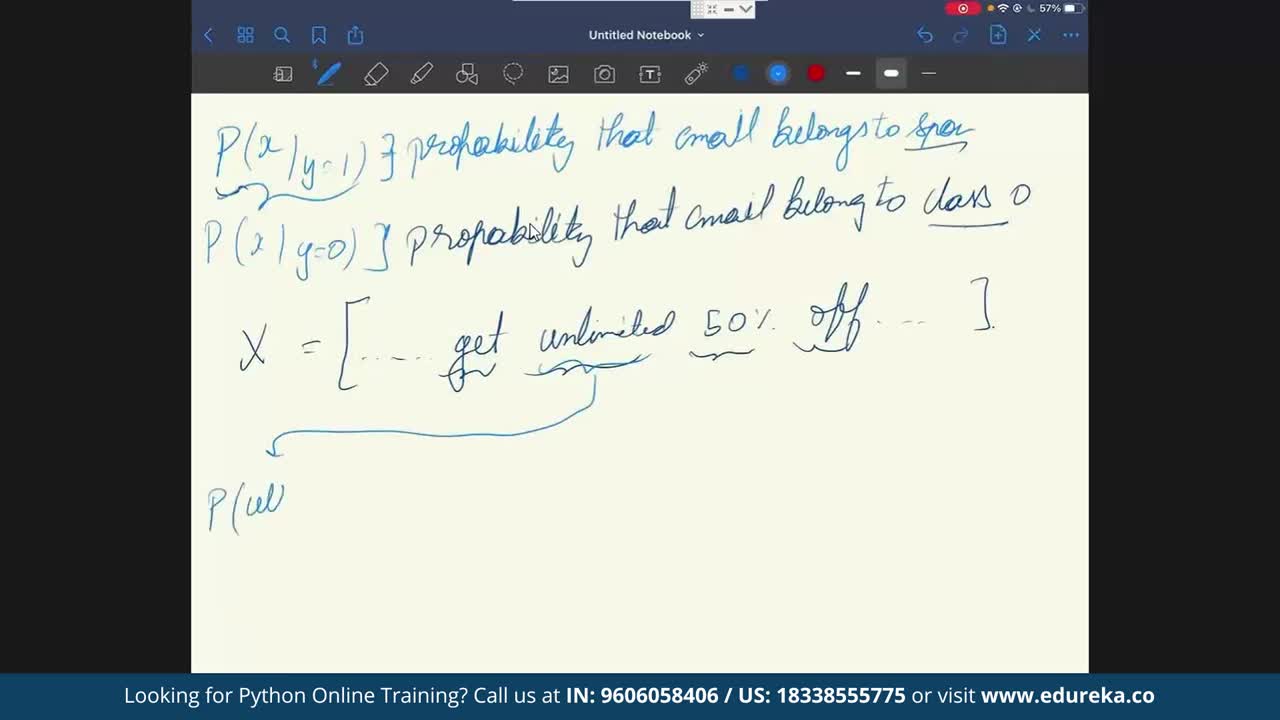 57%
Untitled Notebook
P(x/y=1) } propability that email belongs to spam
P(x/y=0) ] propability that email belong to class 0
X = [...... get unlimited 50% off ..... ]
P(
Looking for Python Online Training? Call us at IN: 9606058406 / US: 18338555775 or visit www.edureka.co